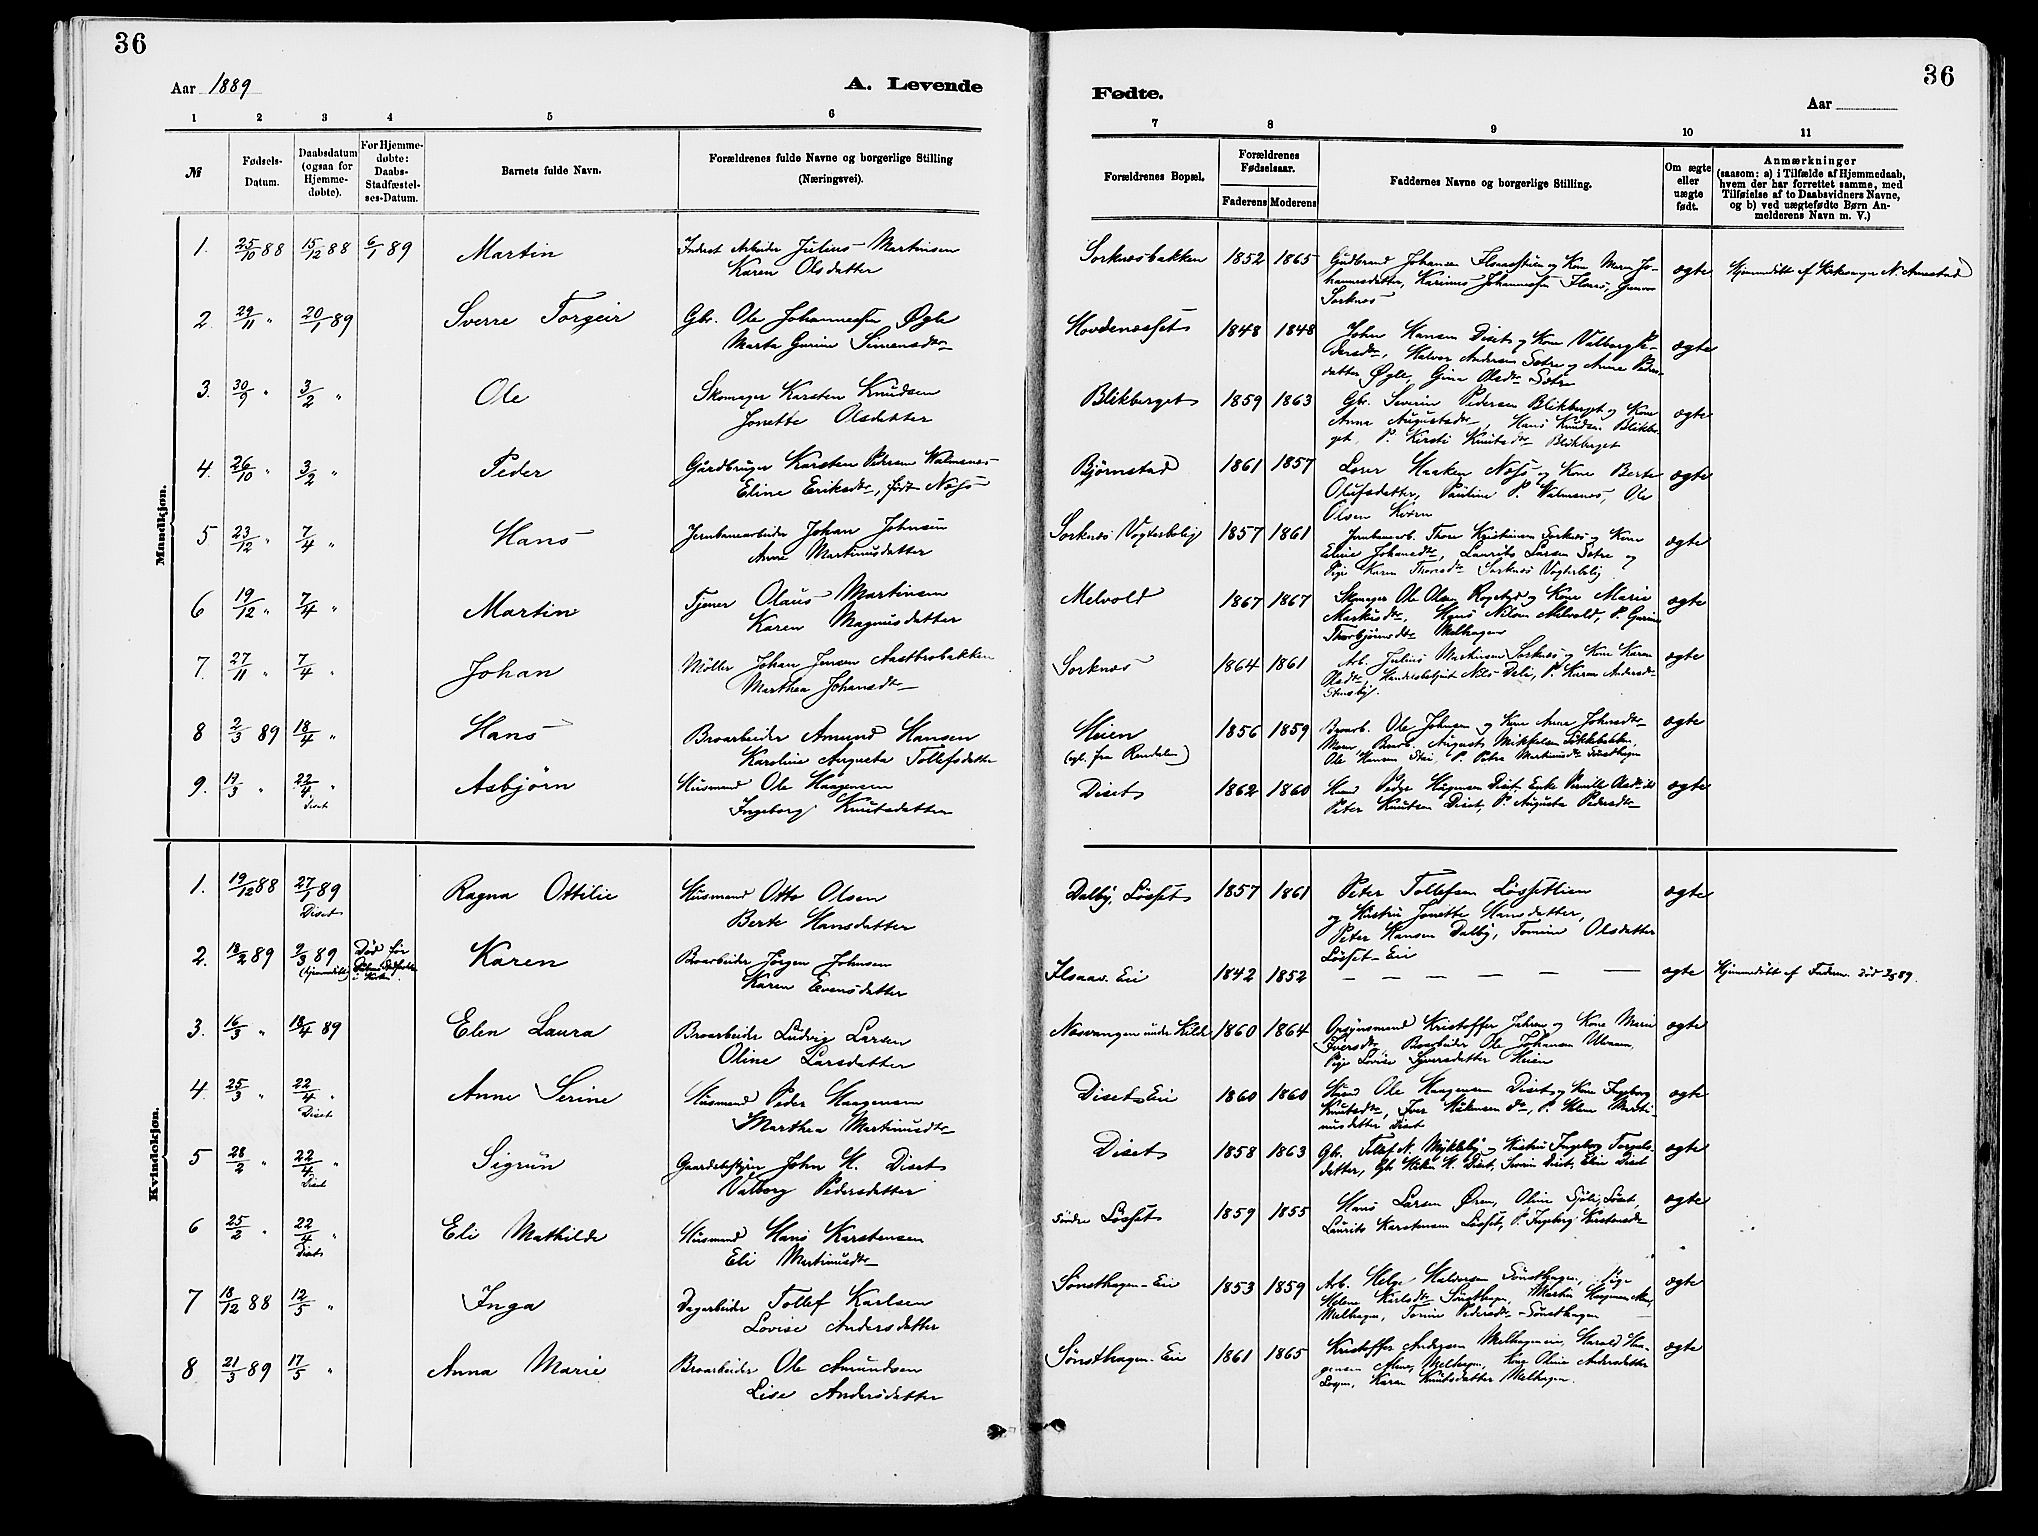 36
Aar 1889
A. Levende
1 2 3 4 5 6
№
Fødsels-
Datum.
Daabsdatum
(ogsaa for
Hjemme-
døbte).
For Hjemme-
døbte:
Daabs-
Stadfæstel-
ses-Datum.
Barnets fulde Navn.
Forældrenes fulde Navne og borgerlige Stilling
(Næringsvei).
Mandkjøn.
1. 25/10 88 15/12 88 6/1 89 Martin Inderst Arbeider Julius Martinsen
Karen Olsdatter
2. 29/11 " 20/1 89 Sverre Torgeir Gbr. Ole Johannessen Øgle
Marta Gurine Simensdtr
3. 30/9 " 3/2 " Ole Skomager Karsten Knudsen
Jonette Olsdatter
4. 26/10 " 3/2 " Peder Gårdbruger Karsten Pedersen Valmsnes
Eline Eriksdtr, født Næss
5 23/12 " 7/4 " Hans Jernbanearbeider Johan Johnsen
Anne Martinusdatter
6 19/12 " 7/4 " Martin Tjener Olaus Martinsen
Karen Magnusdatter
7. 27/11 " 7/4 " Johan Møller Johan Jensen Aastbrobakken
Marthea Johansdtr
8 2/3 89 18/4 " Hans Broarbeider Amund Hansen
Karoline Augusta Tollefsdatter
9. 19/3 " 22/4 " Asbjørn Husmand Ole Haagensen
Diset Ingeborg Knutsdatter
Kvindekjøn.
1. 19/12 88 27/1 89 Ragna Ottilie Husmand Otto Olsen
Diset Berte Hansdatter
2. 18/2 89 2/3 89 Død før Karen Broarbeider Jørgen Johnsen
(hjemmedøbt) Karen Evensdatter
3. 16/3 " 18/4 89 Elen Laura Broarbeider Ludvig Larsen
Oline Larsdatter
4. 25/3 " 22/4 " Anne Serine Husmand Peder Haagensen
Diset Marthea Martinusdtr
5 28/2 " 22/4 " Sigrun Gaardsbestyrer John H. Diset
Diset Valborg Pedersdatter
6 25/2 " 22/4 " Eli Mathilde Husmand Hans Karstensen
Diset Eli Martinusdtr
7 18/12 88 12/5 " Inga Dagarbeider Tollef Karlsen
Lovise Andersdatter
8 21/3 89 17/5 " Anna Marie Broarbeider Ole Amundsen
Lise Andersdatter
36
Fødte.
Aar
7 8 9 10 11
Forældrenes Bopæl.
Forældrenes
Fødselsaar.
Faderens Moderens
Faddernes Navne og borgerlige Stilling.
Om ægte
eller
uægte
født.
Anmærkninger
(saasom: a) i Tilfælde af Hjemmedaab,
hvem der har forrettet samme, med
Tilføielse af to Daabsvidners Navne,
og b) ved uægtefødte Børn An-
melderens Navn m. V.)
Sorknesbakken 1852 1865 Gudbrand Johansen og Kone Maren Jo- ægte Hjemmedøbt af N. Arnestad
hannesdatter, Karinus Johannessen
Sorknes
Hovdenesset 1848 1848 John Hansen Diset og Kone Valborg Pe- ægte
dersdtr, Halvor Andersen Sætre og Anne Peders-
datter Øgle, Gina Olsdtr Sætre
Blikberget 1859 1863 Gb. Severin Pedersen Blikberget og Kone ægte
Anna Augustadtr, Hans Knudsen Blikber-
get, P. Kirsti Knutsdtr Blikberget
Bjørnstad 1861 1857 Lærer Haaken Næss og Kone Berte ægte
Olufsdatter, Pauline P. Valmsnes, Ole
Olsen Kværn
Sorknes Vogterbolig 1857 1861 Jernbanearb. Thore Kristiansen Sorknes og Kone ægte
Eline Johansdtr, Laurits Larsen Sætre og
Pige Karen Thoresdtr Sorknes Vogterbolig
Melvold 1867 1867 Skomager Ole Olsen og Kone Marie ægte
Markusdtr, Magnus Nilsen Melvold, P. Gurine
Thorbjørnsdtr Melhagen
Sorknes 1864 1861 Arb. Julius Martinsen Sorknes og Kone Karen ægte
Olsdtr, Handelsbetjent Nils Dale, P. Karen Andersdtr
Stensbøl.
Heien 1856 1859 Broarb. Ole Johnsen og Kone Anne Johnsdtr ægte
(opl. fra Rendalen) August Mikkelsen Løkkebakke,
Ole Hansen Stai, P. Petra Martinusdtr Sønsthagen
Diset 1862 1860 Husmd Peder Haagensen Diset, Enke Pernille Olsdtr ægte
Peter Knutsen Diset, P. Augusta Pedersdtr
Dalby, Løsset 1857 1861 Peter Tollefsen Løssetlien ægte
og Hustru Jonette Hansdatter,
Peter Hansen Dalby, Tomine Olsdatter
Løsset-Eie
Ilsaas. Eie 1842 1852 — — — — — — ægte Hjemmedøbt af Faderen. Død 89.
Næsvangen under Kilde 1860 1864 Opsynsmand Kristoffer Jahren og Kone Marie ægte
Iversdtr, Broarbeider Ole Johansen Ulvaaen,
Pige Lovise Syversdatter Heien
Diset Eie 1860 1860 Husmd Ole Haagensen Diset og Kone Ingeborg ægte
Knutsdtr, Iver Haakensen, P. Helene Marti-
nusdatter Diset
Diset 1858 1863 Gb. Tollef N. Mykleby og Hustru Ingeborg Torgals- ægte
datter, Gb. H. Diset, Diset, Eline Diset
Søndre Løsset 1859 1855 Hans Larsen Øren, Oline Løset, ægte
Laurits Karstensen Løsset, P. Ingeborg Karstensdtr
Sønsthagen-Eie 1853 1859 Arb. Helge Halvorsen Sønsthagen, Pige ægte
Helene Karlsdtr Sønsthagen, Martin
Melhagen, Tomine Pedersdtr Sønsthagen
Sønsthagen-Eie 1861 1865 Kristoffer Andersen Melhageneie, Harald Haa- ægte
gensen Melhagen, Kone Oline Andersdatter
Karen Knutsdatter Melhagen.